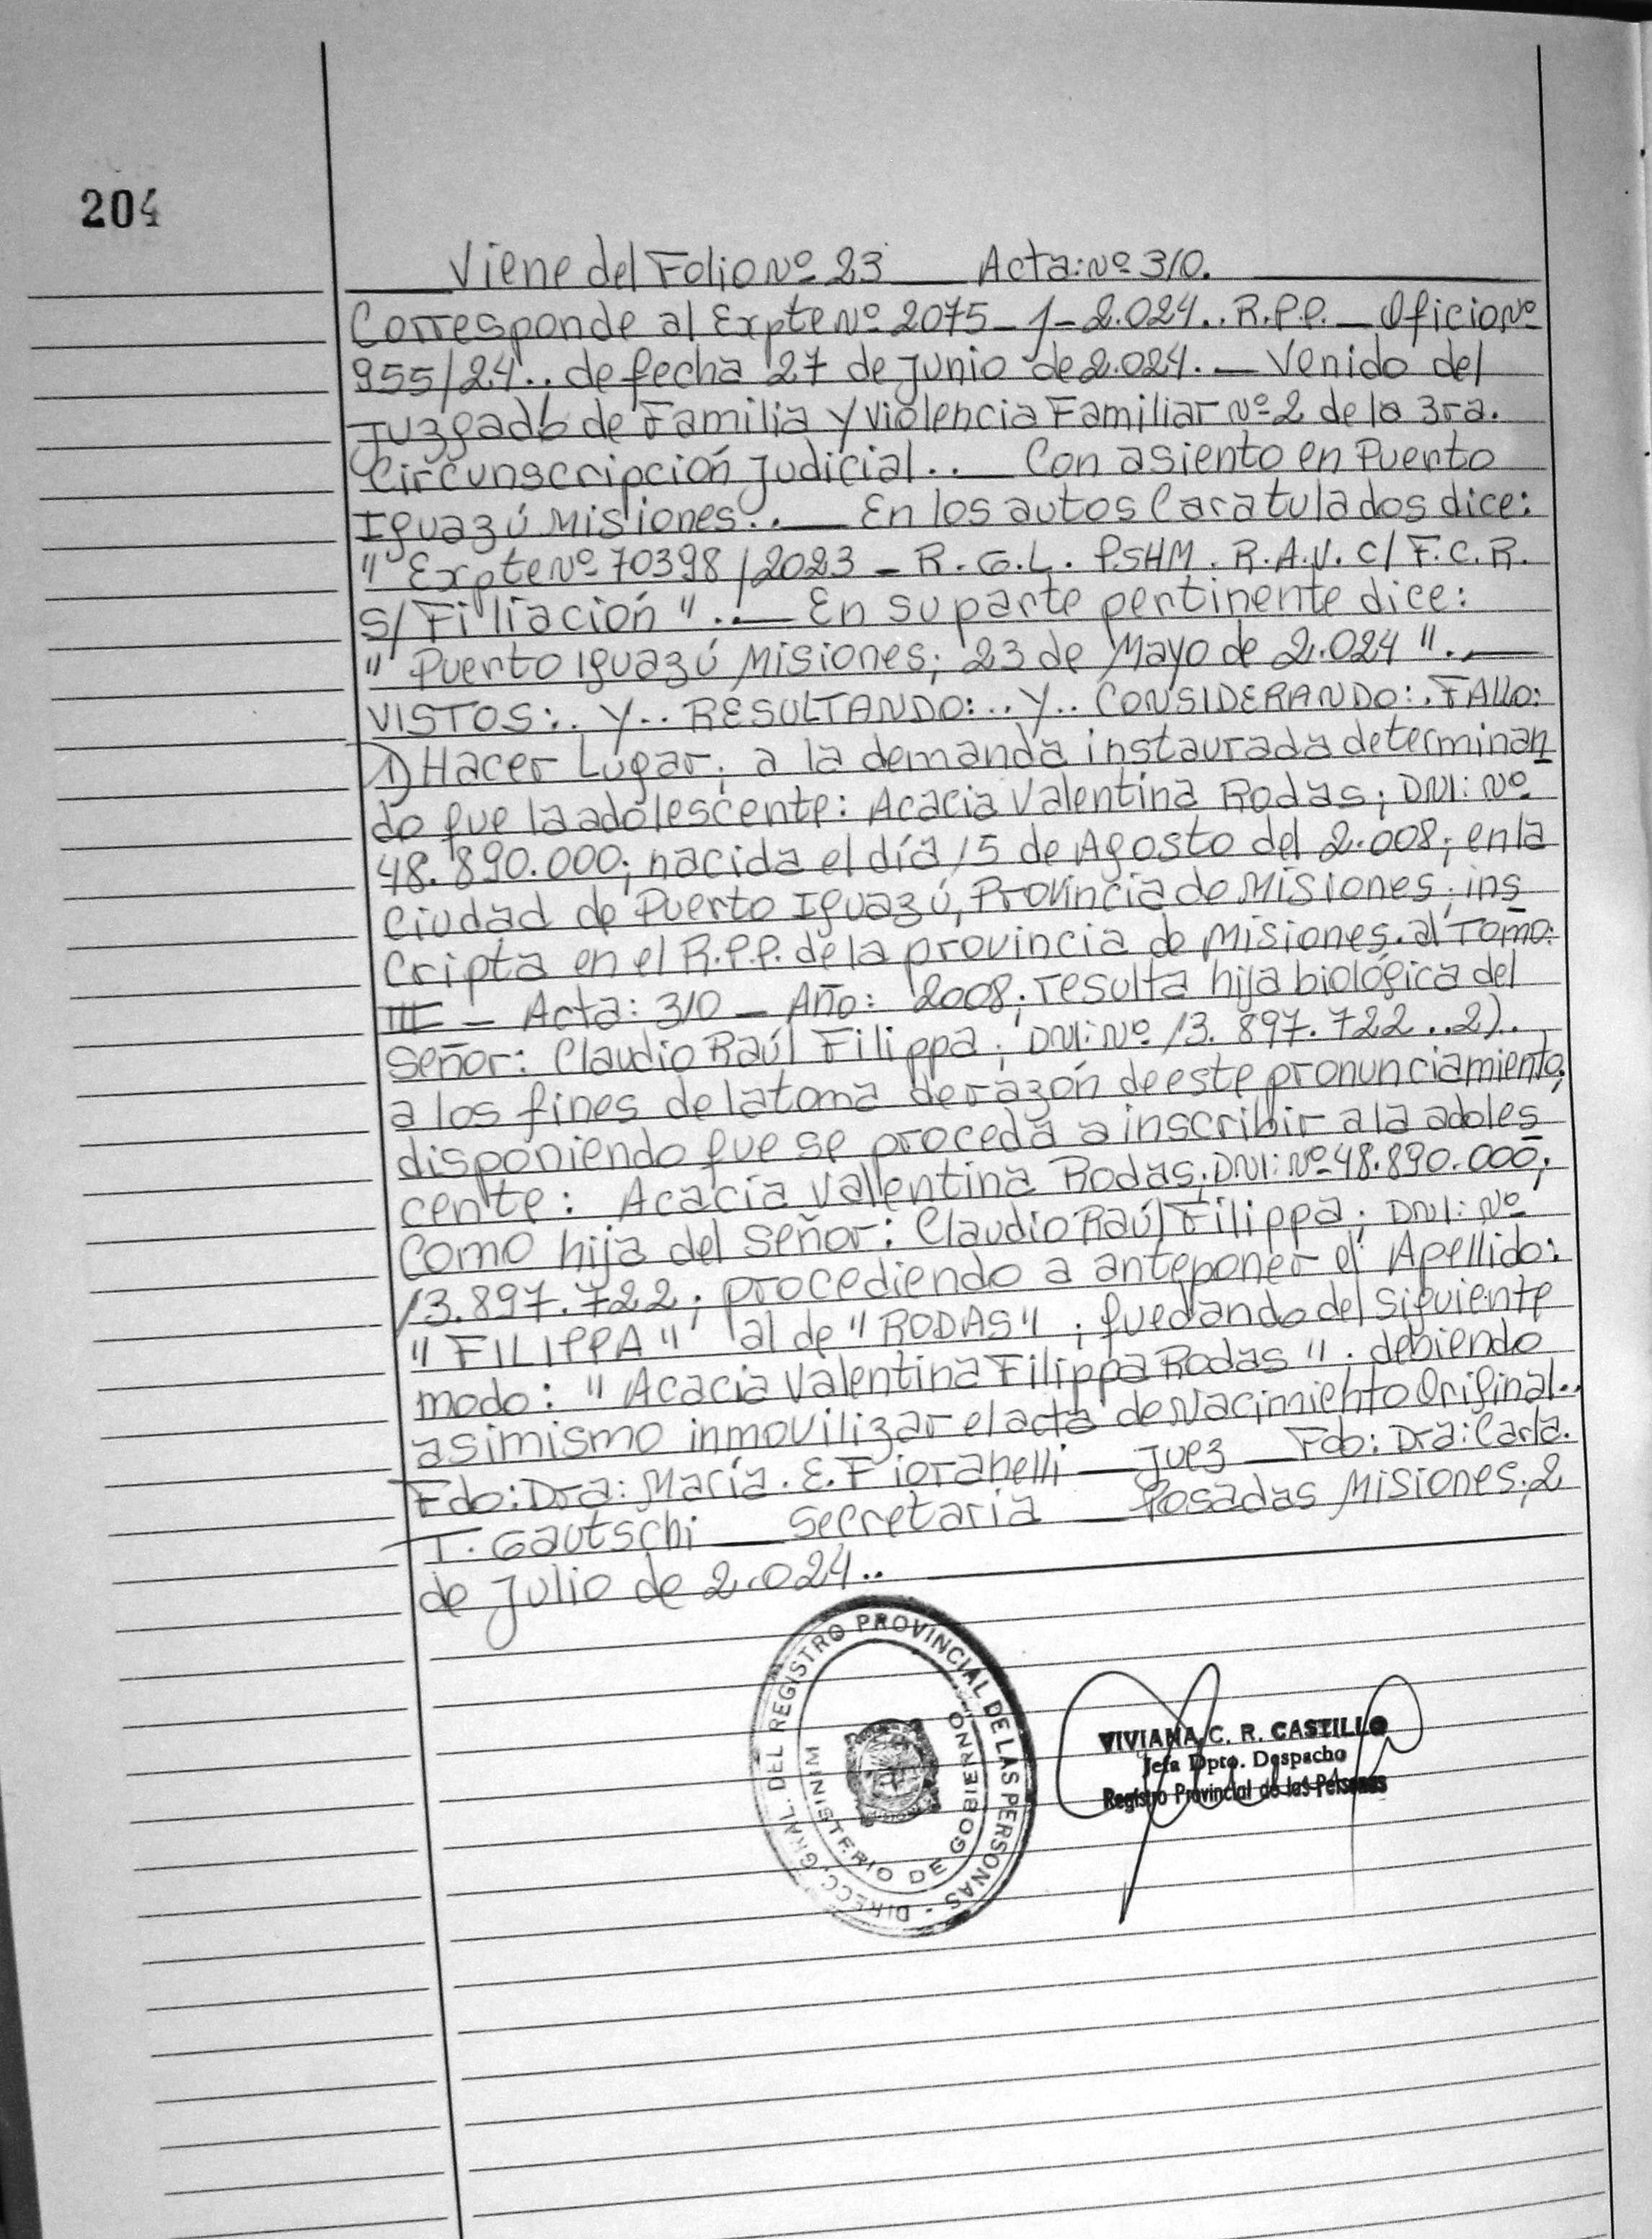 204
Viene del Folio Nº 23 — Acta: Nº 310.
Corresponde al Expte Nº 2075-1-2.024.. R.P.P. — Oficio Nº
955/24.. de fecha 27 de Junio de 2.024. — Venido del
Juzgado de Familia y Violencia Familiar Nº 2 de la 3ra.
Circunscripción Judicial.. — Con asiento en Puerto
Iguazú Misiones.. — En los autos Caratulados dice:
" Expte Nº 70398/2023 - R.G.L. PSHM. R.A.V. c/ F.C.R.
S/ Filiación ".. — En su parte pertinente dice:
" Puerto Iguazú Misiones; 23 de Mayo de 2.024 ". —
VISTOS:. Y.. RESULTANDO:.. Y.. CONSIDERANDO:. FALLO:
1) Hacer Lugar; a la demanda instaurada determinan
do que la adolescente: Acacia Valentina Rodas; DNI: Nº
48.890.000; nacida el día 15 de Agosto del 2.008; en la
Ciudad de Puerto Iguazú, Provincia de Misiones; ins
cripta en el R.P.P. de la provincia de Misiones. al Tomo:
III — Acta: 310 — Año: 2008; resulta hija biológica del
Señor: Claudio Raúl Filippa; DNI: Nº 13.897.722.. 2)..
a los fines de la toma de razón de este pronunciamiento;
disponiendo que se proceda a inscribir a la adoles
cente: Acacia Valentina Rodas; DNI: Nº 48.890.000;
Como hija del Señor: Claudio Raúl Filippa; DNI: Nº
13.897.722; procediendo a anteponer el Apellido:
" FILIPPA " al de " RODAS "; quedando del siguiente
modo: " Acacia Valentina Filippa Rodas "; debiendo
asimismo inmovilizar el acta de Nacimiento Original..
Fdo: Dra: María. E. Fioranelli — Juez — Fdo: Dra: Carla.
T. Gautschi — Secretaria — Posadas Misiones; 2
de Julio de 2.024..
DIRECC. GRAL. DEL REGISTRO PROVINCIAL DE LAS PERSONAS
MINISTERIO DE GOBIERNO
VIVIANA C. R. CASTILLO
Jefa Dpto. Despacho
Registro Provincial de las Personas